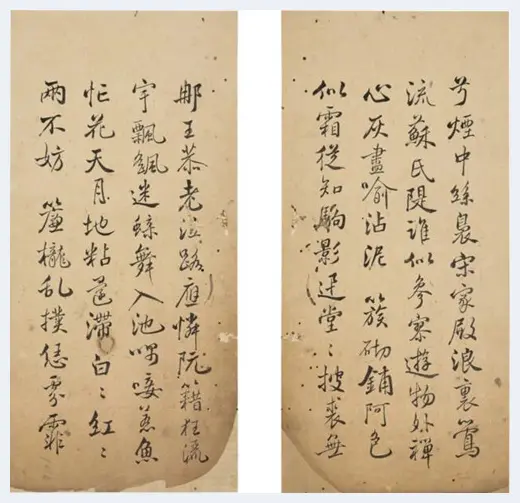 兮煙中絲裊宋家殿浪裏鶯
流蘇氏隄誰似參寥遊物外禪
心灰盡喻沾泥 簇砌鋪阿色
似霜從知駒影迅堂〻披裘無
那王恭老泣路應憐阮籍狂流
宇飄颻迷蝶舞入池喁唼惹魚
忙花天月地粘還滯白〻紅〻
兩不妨 簾櫳乱撲恁雰霏